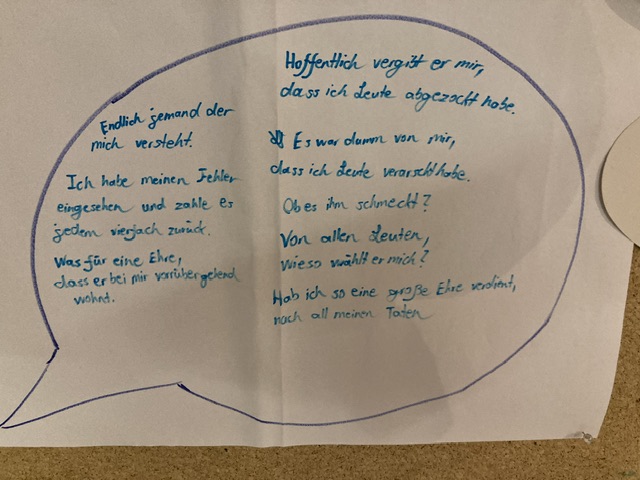 Endlich jemand der
mich versteht.
Ich habe meinen Fehler
eingesehen und zahle es
jedem vierfach zurück.
Was für eine Ehre,
dass er bei mir vorrübergehend
wohnt.
Hoffentlich vergibt er mir,
dass ich Leute abgezockt habe.
Es war dumm von mir,
dass ich Leute verarscht habe.
Ob es ihm schmeckt?
Von allen Leuten,
wieso wählt er mich?
Hab ich so eine große Ehre verdient,
nach all meinen Taten